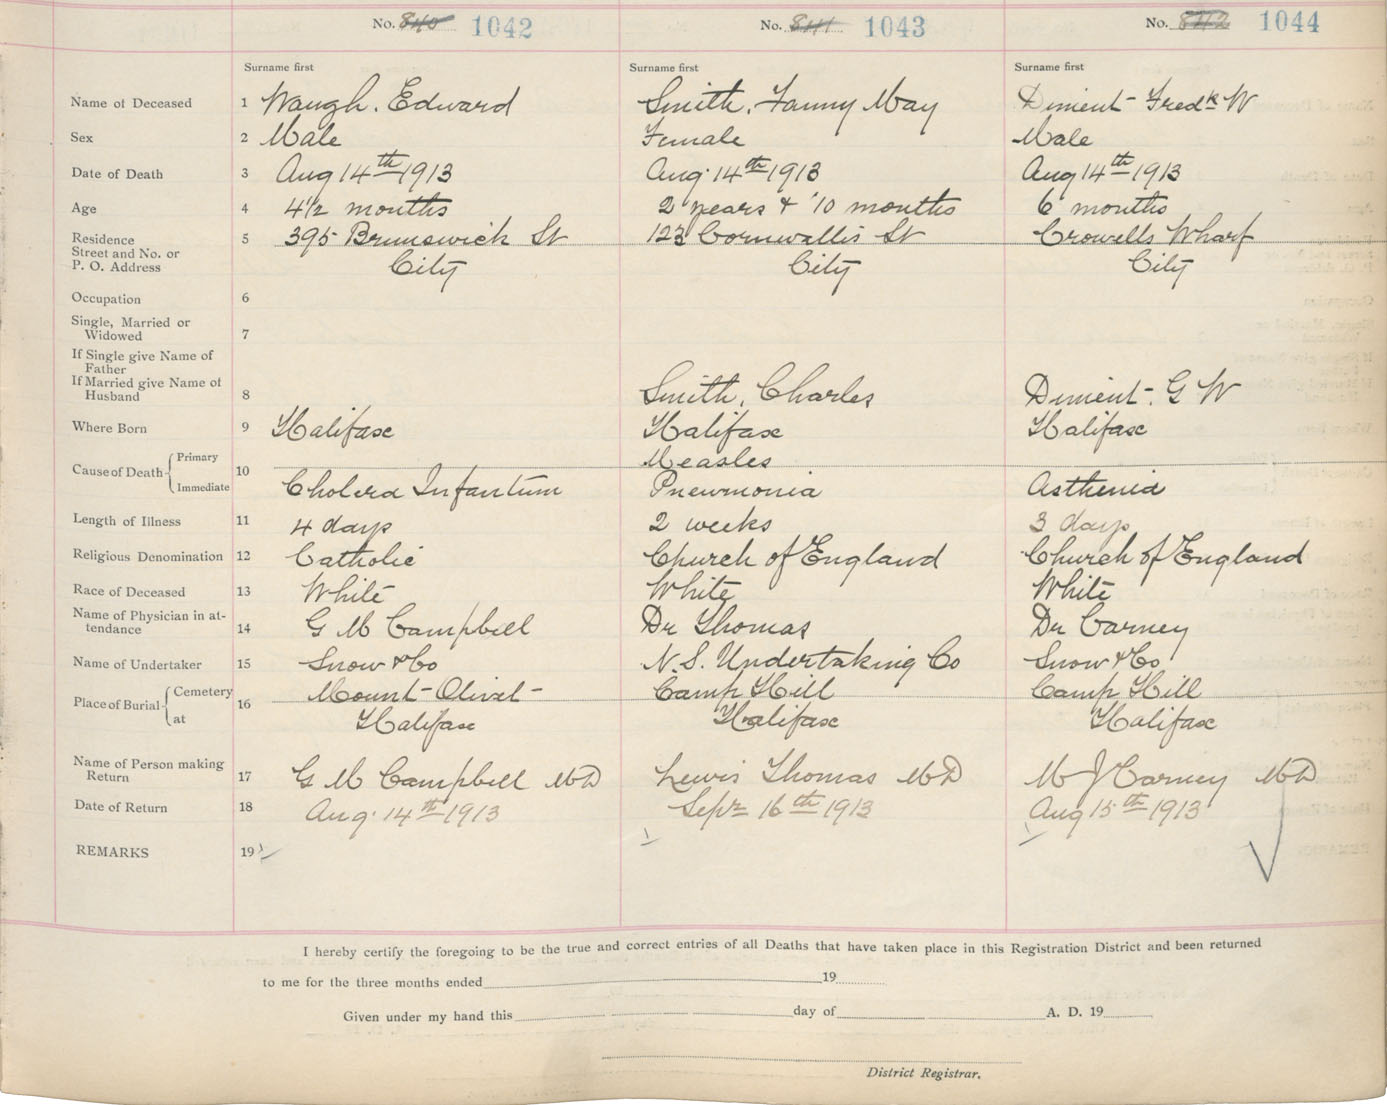 No. 840 1042 No. 841 1043 No. 842 1044
Surname first Surname first Surname first
Name of Deceased 1 Waugh, Edward Smith, Fanny May Diment - Fredk W
Sex 2 Male Female Male
Date of Death 3 Aug 14th 1913 Aug. 14th 1913 Aug 14th 1913
Age 4 4½ months 2 years & 10 months 6 months
Residence 5 395 Brunswick St 123 Cornwallis St Crowells Wharf
Street and No. or
P. O. Address City City City
Occupation 6
Single, Married or
Widowed 7
If Single give Name of
Father
If Married give Name of
Husband 8 Smith, Charles Diment - G W
Where Born 9 Halifax Halifax Halifax
Cause of Death Primary 10 Measles
Immediate Cholera Infantum Pneumonia Asthenia
Length of Illness 11 4 days 2 weeks 3 days
Religious Denomination 12 Catholic Church of England Church of England
Race of Deceased 13 White White White
Name of Physician in at-
tendance 14 G M Campbell Dr Thomas Dr Carney
Name of Undertaker 15 Snow & Co N. S. Undertaking Co Snow & Co
Place of Burial Cemetery 16 Mount - Olivet - Camp Hill Camp Hill
at Halifax Halifax Halifax
Name of Person making
Return 17 G M Campbell MD Lewis Thomas MD M J Carney MD
Date of Return 18 Aug. 14th 1913 Sepr 16th 1913 Aug 15th 1913
REMARKS 19
I hereby certify the foregoing to be the true and correct entries of all Deaths that have taken place in this Registration District and been returned
to me for the three months ended 19
Given under my hand this day of A. D. 19
District Registrar.